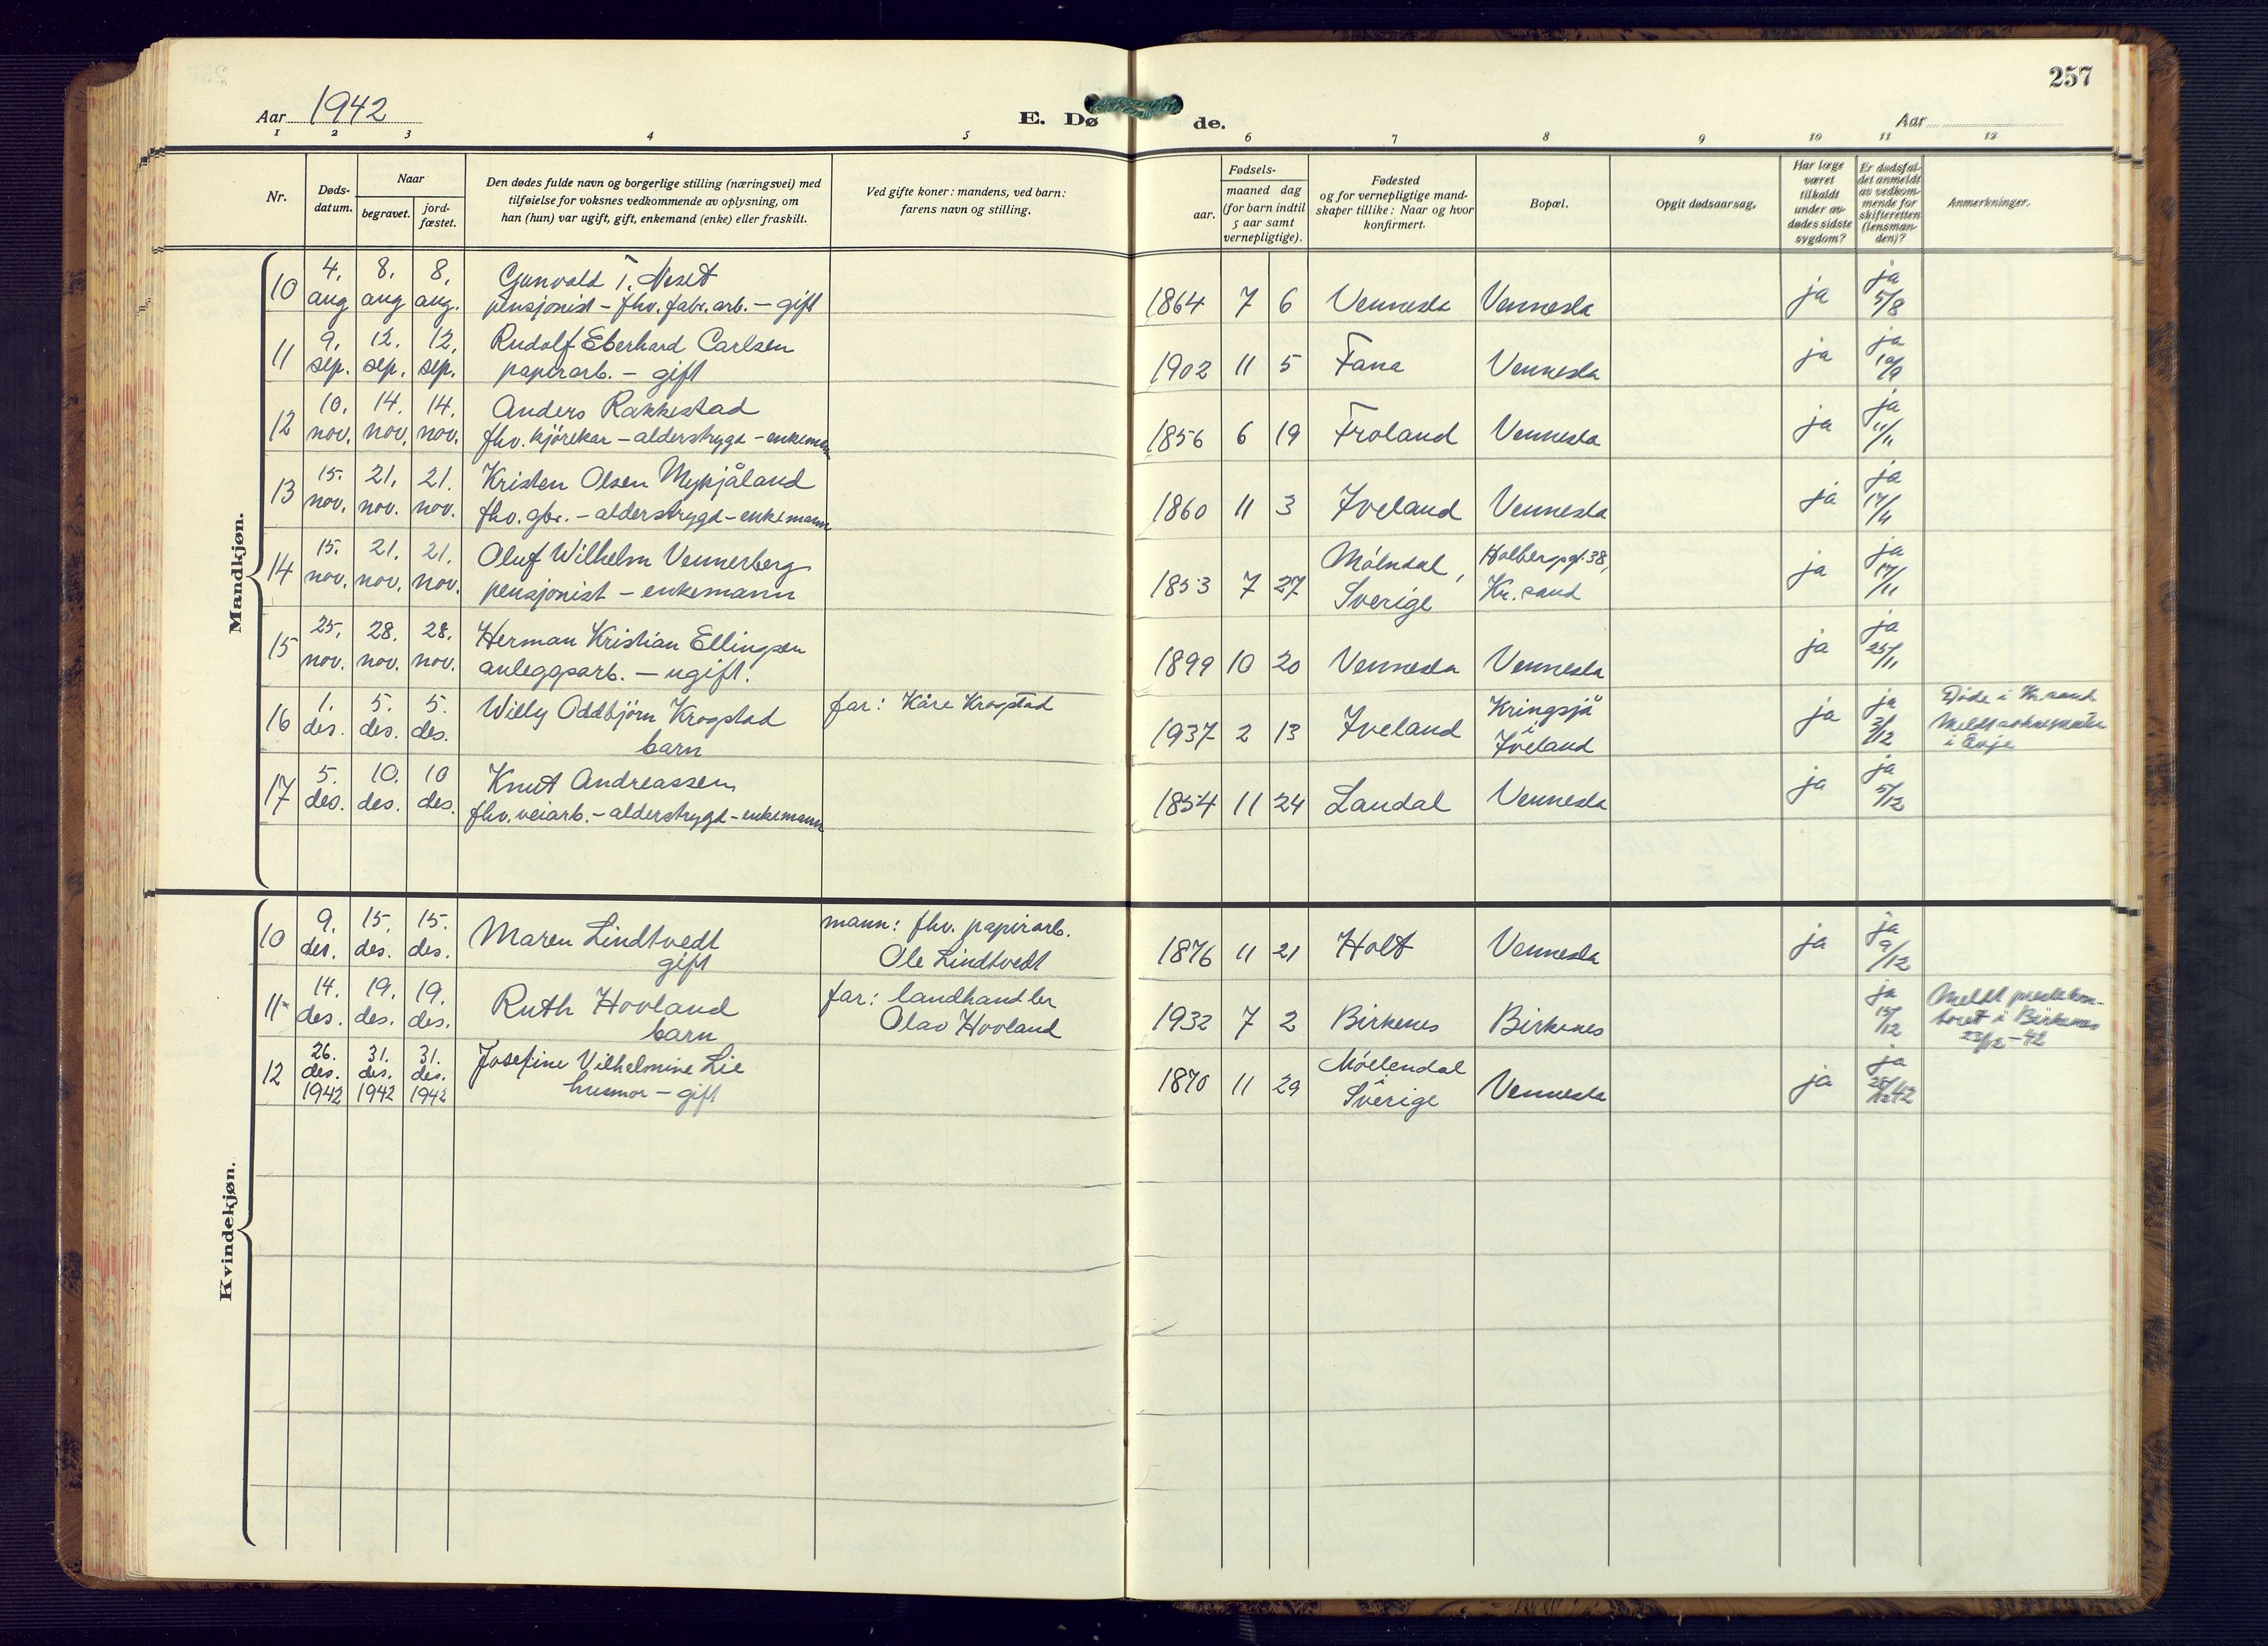 257
Aar 1942
E. Dø de.
Aar
1 2 3 4 5 6 7 8 9 10 11 12
Nr.
Døds-
datum.
Naar
begravet.
jord-
fæstet.
Den dødes fulde navn og borgerlige stilling (næringsvei) med
tilføielse for voksnes vedkommende av oplysning, om
han (hun) var ugift, gift, enkemand (enke) eller fraskilt.
Ved gifte koner: mandens, ved barn:
farens navn og stilling.
Fødsels-
aar.
maaned dag
(for barn indtil
5 aar samt
vernepligtige).
Fødested
og for vernepligtige mand-
skaper tillike: Naar og hvor
konfirmert.
Bopæl.
Opgit dødsaarsag.
Har læge
været
tilkaldt
under av-
dødes sidste
sygdom?
Er dødsfal-
det anmeldt
av vedkom-
mende for
skifteretten
(lensman-
den)?
Anmerkninger.
Mandkjøn.
10 4. 8. 8. Gunvald T. Neset ja
aug aug aug. pensjonist - fhv. fabr. arb. - gift 1864 7 6 Vennesla Vennesla ja 5/8
11 9. 12. 12. Rudolf Eberhard Carlsen ja
sep. sep. sep. papirarb. - gift 1902 11 5 Fana Vennesla ja 10/9
12 10. 14. 14. Anders Rakkestad ja
nov. nov. nov. fhv. kjørekar - alderstrygd - enkemann 1856 6 19 Froland Vennesla ja 11/11
13 15. 21. 21. Kristen Olsen Mykjåland ja
nov. nov. nov. fhv. gbr. - alderstrygd - enkemann 1860 11 3 Iveland Vennesla ja 17/11
14 15. 21. 21. Oluf Wilhelm Vennerberg Mölndal, Holbergsgt. 38, ja
nov. nov. nov. pensjonist - enkemann 1853 7 27 Sverige Kr. sand ja 17/11
15 25. 28. 28. Herman Kristian Ellingsen ja
nov. nov. nov. anleggsarb. - ugift. 1899 10 20 Vennesla Vennesla ja 25/11
16 1. 5. 5. Willy Oddbjörn Krogstad far: Kåre Krogstad Kringsjå ja Døde i Kr.sand
des. des. des. barn 1937 2 13 Iveland i Iveland ja 2/12 Meldt
i Evje
17 5. 10. 10 Knut Andreassen ja
des. des. des. fhv. veiarb. - alderstrygd - enkemann 1854 11 24 Laudal Vennesla ja 5/12
Kvindekjøn.
10 9. 15. 15. Maren Lindtvedt mann: fhv. papirarb. ja
des. des. des. gift Ole Lindtvedt 1876 11 21 Holt Vennesla ja 9/12
11 14. 19. 19. Ruth Hovland far: landhandler ja Meldt prestekon-
des. des. des. barn Olav Hovland 1932 7 2 Birkenes Birkenes 15/12 toret i Birkenes
23/12-42
12 26. 31. 31. Josefine Vilhelmine Lie Möllendal ja
des. des. des. husmor - gift 1870 11 29 i Sverige Vennesla ja
1942 1942 1942